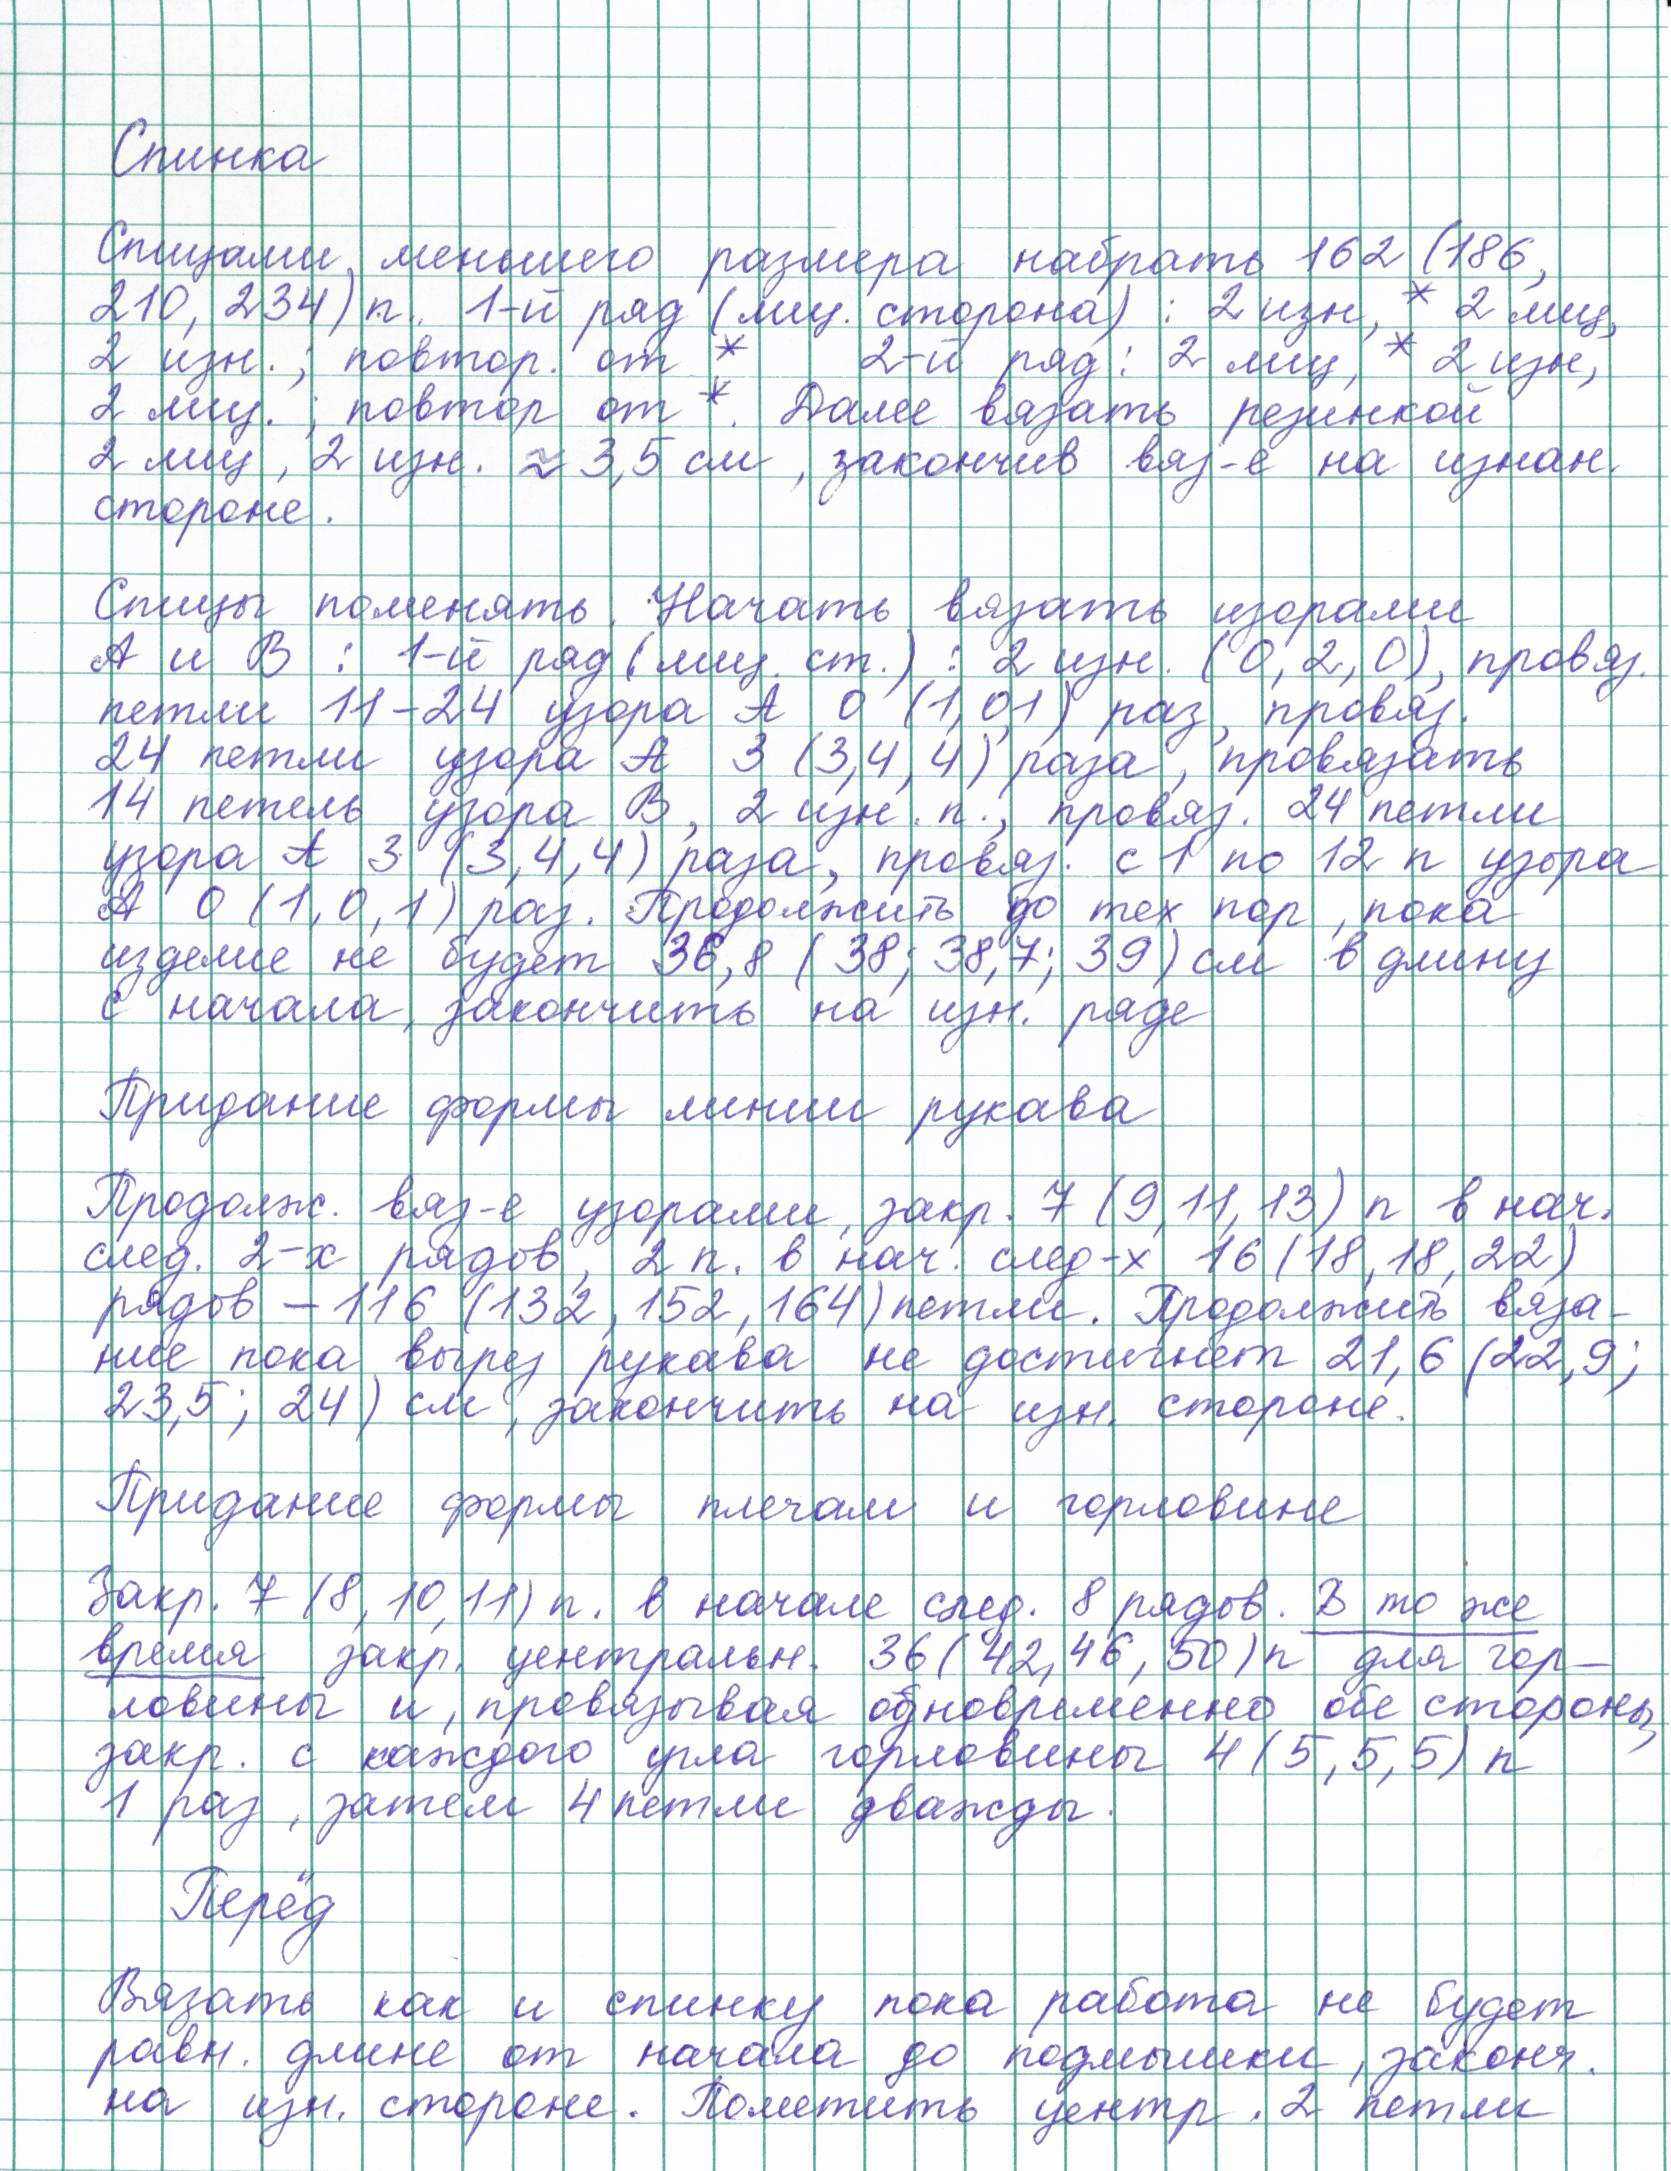 Спинка
Спицами меньшего размера набрать 162 (186,
210, 234) п. 1-й ряд (лиц. сторона) : 2 изн, * 2 лиц,
2 изн. ; повтор. от * 2-й ряд : 2 лиц, * 2 изн,
2 лиц. ; повтор от *. Далее вязать резинкой
2 лиц, 2 изн. ≈ 3,5 см, закончив вяз-е на изнан.
стороне.
Спицы поменять. Начать вязать узорами
А и В : 1-й ряд (лиц. ст.) : 2 изн. (0, 2, 0), провяз.
петли 11-24 узора А 0 (1,0,1) раз, провяз.
24 петли узора А 3 (3,4,4) раза, провязать
14 петель узора В, 2 изн. п., провяз. 24 петли
узора А 3 (3,4,4) раза, провяз. с 1 по 12 п узора
А 0 (1,0,1) раз. Продолжить до тех пор, пока
изделие не будет 36,8 (38; 38,7; 39) см в длину
с начала, закончить на изн. ряде
Придание формы линии рукава
Продолж. вяз-е узорами, закр. 7 (9,11,13) п в нач.
след. 2-х рядов, 2 п. в нач. след-х 16 (18,18,22)
рядов – 116 (132, 152, 164) петли. Продолжить вяза-
ние пока вырез рукава не достигнет 21,6 (22,9;
23,5; 24) см, закончить на изн. стороне.
Придание формы плечам и горловине
Закр. 7 (8, 10, 11) п. в начале след. 8 рядов. В то же
время закр. центральн. 36 (42, 46, 50) п для гор-
ловины и, провязывая одновременно обе стороны,
закр. с каждого угла горловины 4 (5,5,5) п
1 раз, затем 4 петли дважды.
Перёд
Вязать как и спинку пока работа не будет
равн. длине от начала до подмышки, законч.
на изн. стороне. Пометить центр. 2 петли